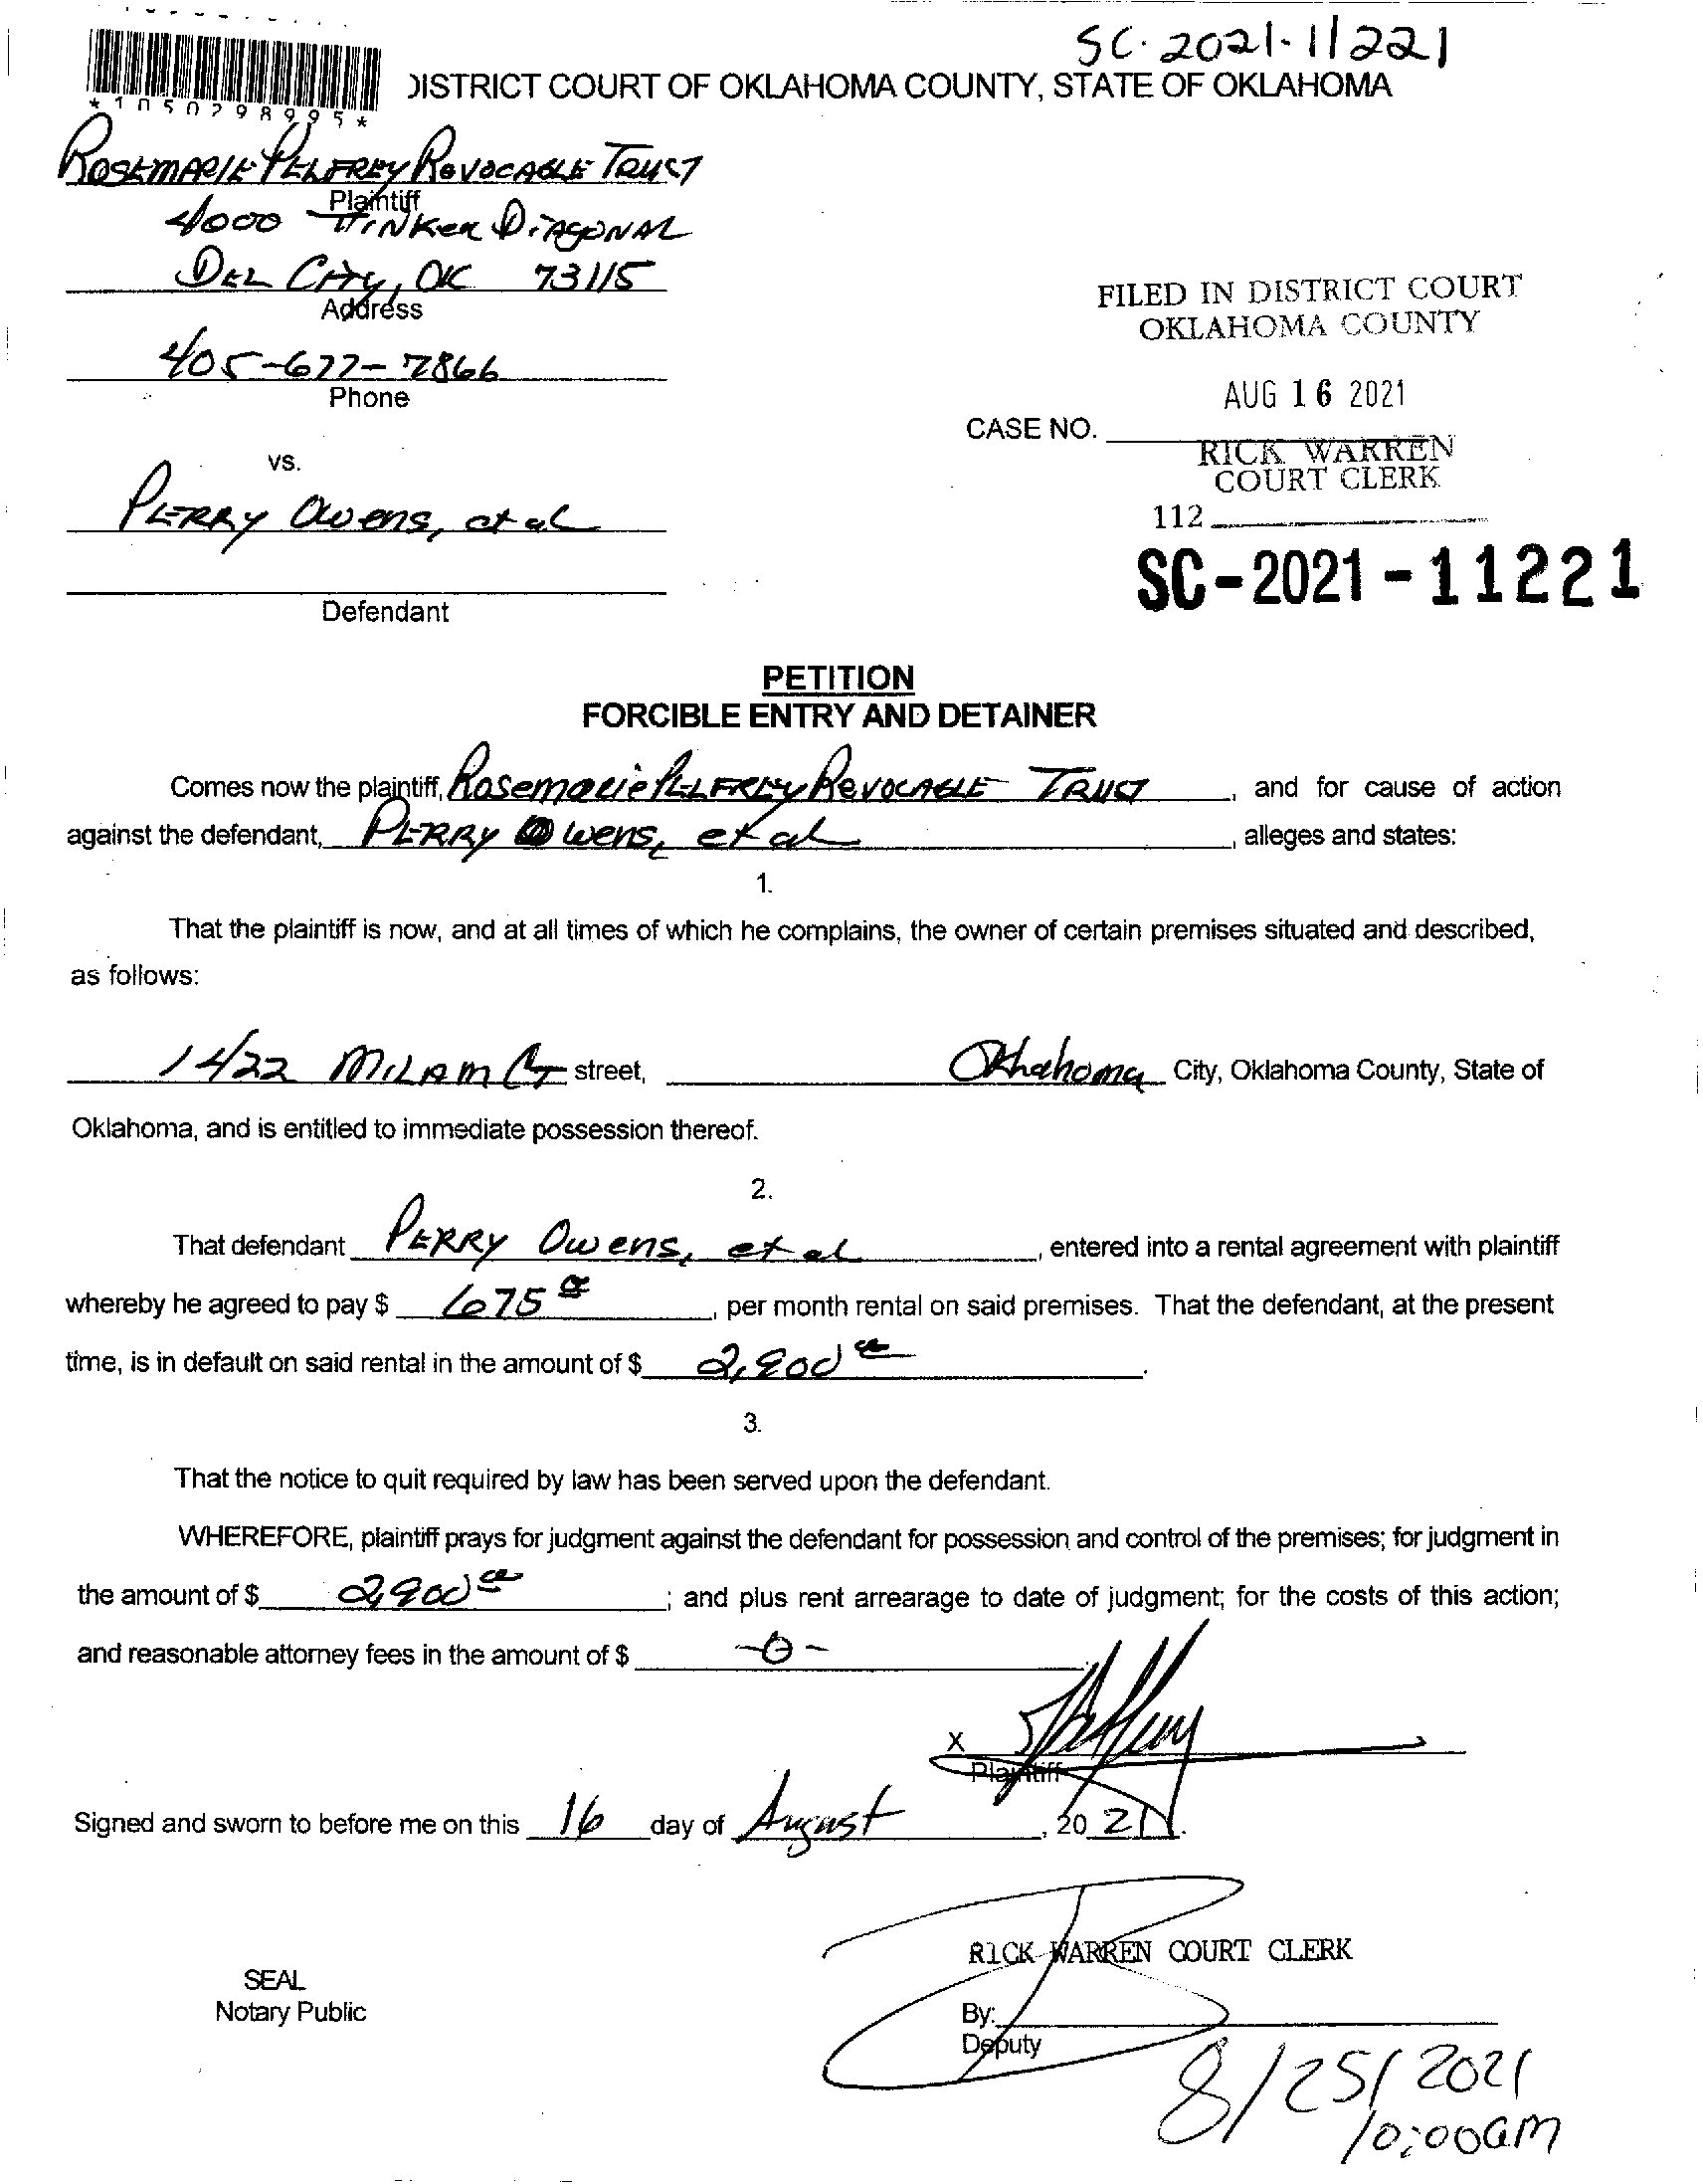 SC-2021-11221
DISTRICT COURT OF OKLAHOMA COUNTY, STATE OF OKLAHOMA
*1050298995*
ROSEMARIE PELFREY REVOCABLE TRUST
Plaintiff
4000 TINKER DIAGONAL
DEL CITY, OK 73115
Address
FILED IN DISTRICT COURT
OKLAHOMA COUNTY
405-677-7866
Phone
AUG 16 2021
CASE NO.
RICK WARREN
COURT CLERK
vs.
PERRY Owens, et al
112
SC-2021-11221
Defendant
PETITION
FORCIBLE ENTRY AND DETAINER
Comes now the plaintiff, Rosemarie PELFREY REVOCABLE TRUST, and for cause of action
against the defendant, PERRY Owens, et al, alleges and states:
1.
That the plaintiff is now, and at all times of which he complains, the owner of certain premises situated and described,
as follows:
1422 MILAM CT street, Oklahoma City, Oklahoma County, State of
Oklahoma, and is entitled to immediate possession thereof.
2.
That defendant PERRY Owens, et al, entered into a rental agreement with plaintiff
whereby he agreed to pay $ 675, per month rental on said premises. That the defendant, at the present
time, is in default on said rental in the amount of $ 2,900.
3.
That the notice to quit required by law has been served upon the defendant.
WHEREFORE, plaintiff prays for judgment against the defendant for possession and control of the premises; for judgment in
the amount of $ 2,900; and plus rent arrearage to date of judgment; for the costs of this action;
and reasonable attorney fees in the amount of $ -0-
X
Plaintiff
Signed and sworn to before me on this 16 day of August, 2021.
RICK WARREN COURT CLERK
SEAL
Notary Public
By:
Deputy
8/25/2021
10:00am